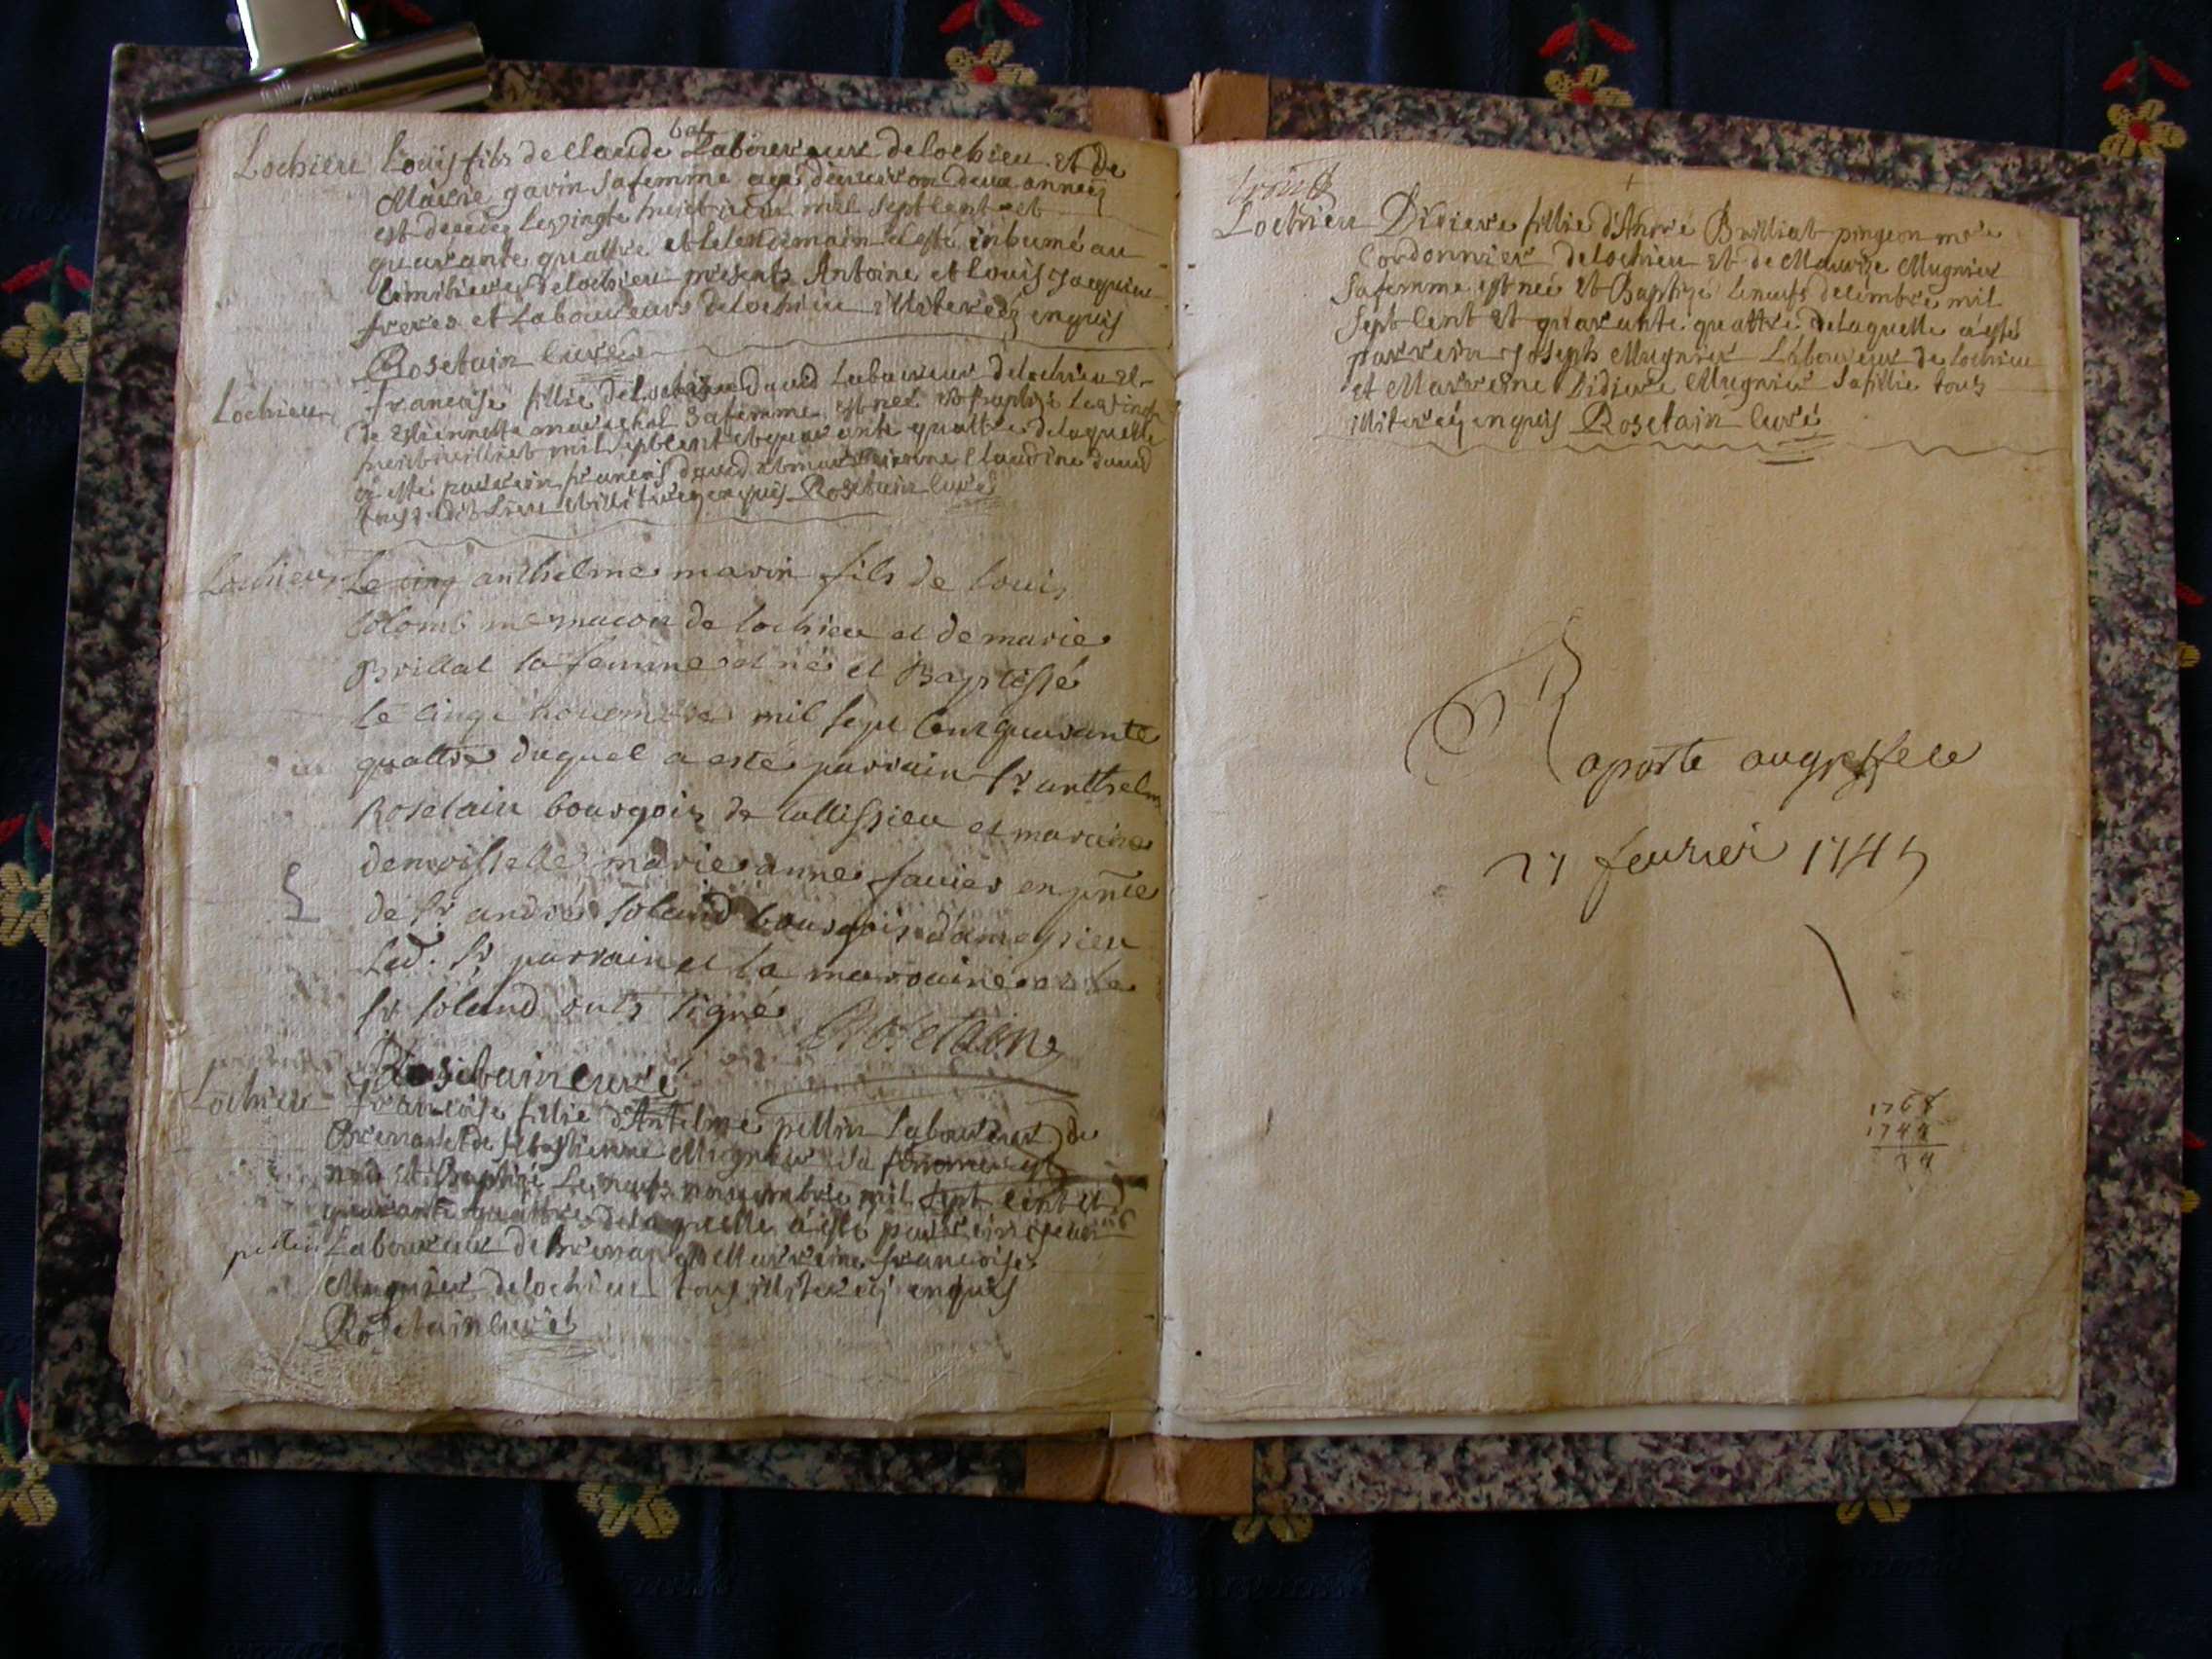 Lochieu Louis fils de Claude bal Laboureur de lochieu et de
Marie gavin sa femme agé d'environ deux années
est decedé le vingte huict mil sept cent et
quarante quattre et le lendemain a esté inhumé au
cimitiere de lochieu presents Antoine et Louis Jacquin
freres et Laboureurs de lochieu illiterez enquis
Rosetain curé
Lochieu francoise fillie de daud Laboureur de lochieu et
de Estiennette marechal sa femme est neé et baptizé le vingt
huict juilliet mil sept cent et quarante quattre de laquelle
a esté parrein francois daud et marreine Claudine daud
tous dudit Lieu illiterez enquis Rosetain curé
Lochieu Le cinq anthelme marin fils de louis
Colomb me macon de lochieu et de marie
Brillat sa femme est né et Baptissé
le cinq novembre mil sept cent quarante
quattre duquel a esté parrain sr anthelme
Rosetain bourgois de tallissieu et maraine
demoisselle marie anne favier en pnce
de sr andré soland bourgois d'ameysieu
Led. sr parrain et la maraine et le
sr soland onts signé
Rosetain
Rosetain curé
Lochieu francoise fillie d'Antelme pellin Laboureur de
Brenas et de sebastienne Mugnier sa femme est
née et Baptizé Le neufs novembre mil sept cent et
quarante quattre de laquelle a esté parrein
pellin Laboureur de brenas et Marreine francoise
Mugnier de lochieu tous illiterez enquis
Rosetain curé
Lochieu Didiere fillie d'André Brilliat pingeon mre
Cordonnier de lochieu et de Maurize Mugnier
sa femme est neé et Baptizé le neufs decembre mil
sept cent et quarante quattre de laquelle a esté
parrein Joseph Mugnier Laboureur de lochieu
et Marreine Didiere Mugnier sa fillie tous
illiterez enquis Rosetain curé
Raporté au greffe le
27 fevrier 1745
1768
1744
24